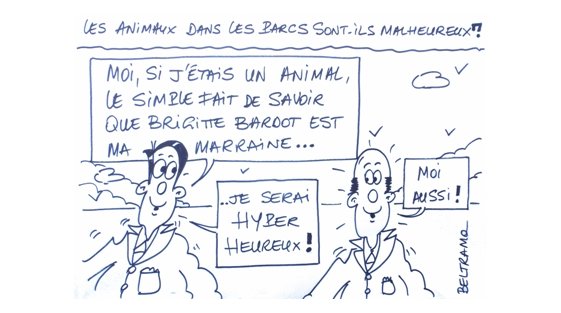 LES ANIMAUX DANS LES PARCS SONT-ILS MALHEUREUX ?
MOI, SI J'ÉTAIS UN ANIMAL,
LE SIMPLE FAIT DE SAVOIR
QUE BRIGITTE BARDOT EST
MA MARRAINE...
..JE SERAI
HYPER
HEUREUX !
MOI
AUSSI !
BELTRAMO